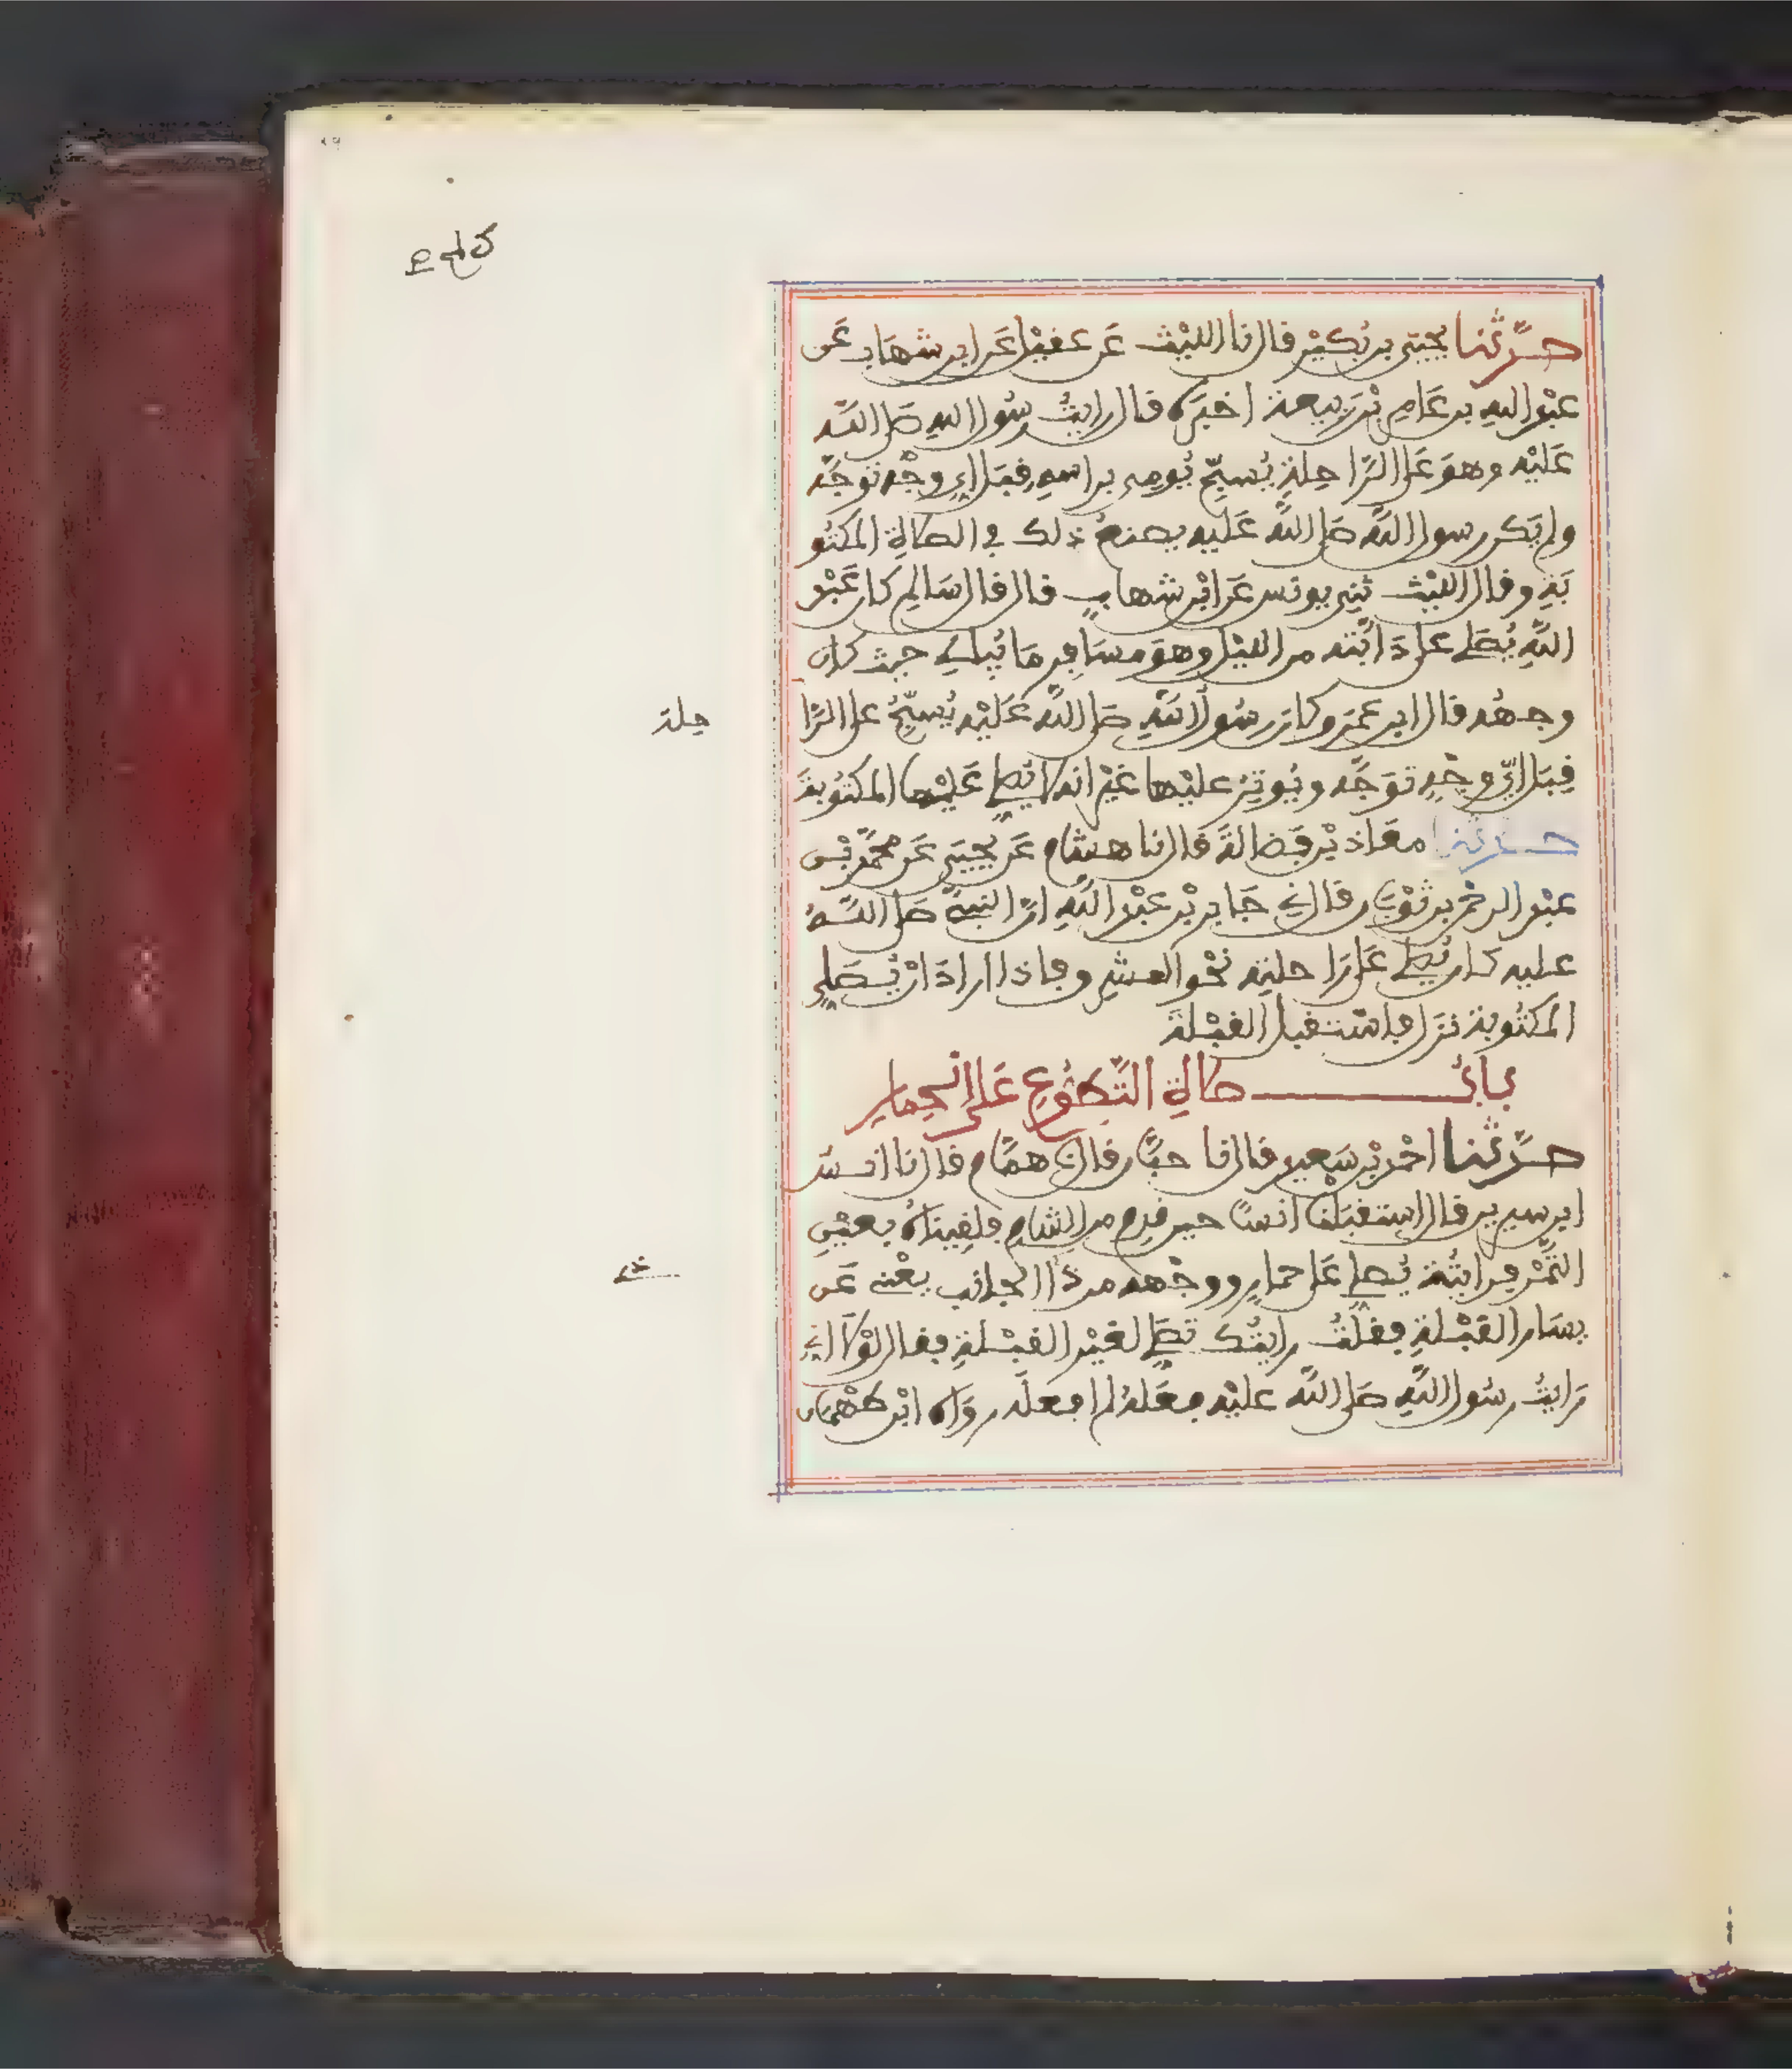 حدثنا يحيى بن بكير قال نا الليث عن عقيل عن ابن شهاب عن
عبد الله بن عامر بن ربيعة اخبره قال رايت رسول الله صلى الله
عليه وهو على الراحلة يسبح يومى براسه قبل اي وجه توجه
ولم يكن رسول الله صلى الله عليه يصنع ذلك في الصلاة المكتو
بة وقال الليث ثني يونس عن ابن شهاب قال قال سالم كان عبد
الله يصلي على دابته من الليل وهو مسافر ما يبالي حيث كان
وجهه قال ابن عمر وكان رسول الله صلى الله عليه يسبح على الرا
حلة
قبل اي وجه توجه ويوتر عليها غير انه لا يصلي عليها المكتوبة
حدثنا معاذ بن فضالة قال نا هشام عن يحيى عن محمد بن
عبد الرحمن بن ثوبان قال ني جابر بن عبد الله ان النبي صلى الله
عليه كان يصلي على راحلته نحو المشرق فاذا اراد ان يصلي
المكتوبة نزل فاستقبل القبلة
باب صلاة التطوع على الحمار
حدثنا احمد بن سعيد قال نا حبان قال نا همام قال نا انس
ابن سيرين قال استقبلنا انسا حين قدم من الشام فلقيناه بعين
التمر فرايته يصلي على حمار ووجهه من ذا الجانب يعني عن
يسار القبلة فقلت رايتك تصلي لغير القبلة فقال لولا اني
رايت رسول الله صلى الله عليه فعله لم افعله رواه ابن طهمان